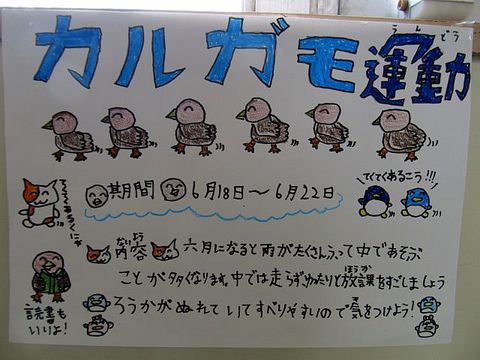 カルガモ運動
うんどう
てくてくあるこう!!!
てくてくあるくにゃ
期間 6月18日〜6月22日
ないよう
内容 六月になると雨がたくさんふって中であそぶ
ことが多くなります。中では走らず、ゆったりと放課をすごしましょう
ほうか
ろうかがぬれていてすべりやすいので気をつけよう!
き
読書も
いいよ!